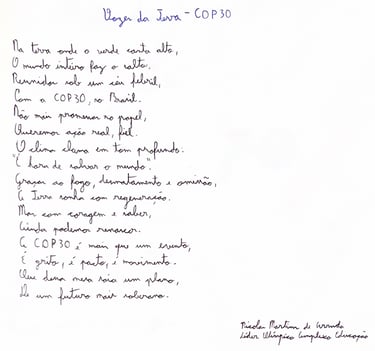 Vozes da Terra - COP30
Na terra onde o verde canta alto,
O mundo inteiro faz o salto.
Reunidos sob um céu febril,
Com a COP30, no Brasil.
Não mais promessas no papel,
Queremos ação real, fiel.
O clima clama em tom profundo:
"É hora de salvar o mundo".
Graças ao fogo, desmatamento e omissão,
A Terra sonha com regeneração.
Mas com coragem e saber,
Ainda podemos renascer.
A COP30 é mais que um evento,
É grito, é pacto, é movimento.
Que dessa mesa saia um plano,
De um futuro mais soberano.
Martins de Arruda
Líder Complexo Educação